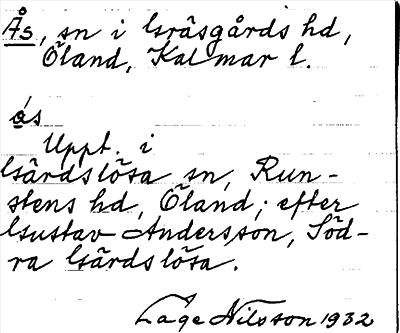 Ås, sn i Gräsgårds hd,
Öland, Kalmar l.
ås
Uppt. i
Gärdslösa sn, Run-
stens hd, Öland; efter
Gustav Andersson, Söd-
ra Gärdslösa.
Låge Nilsson 1932